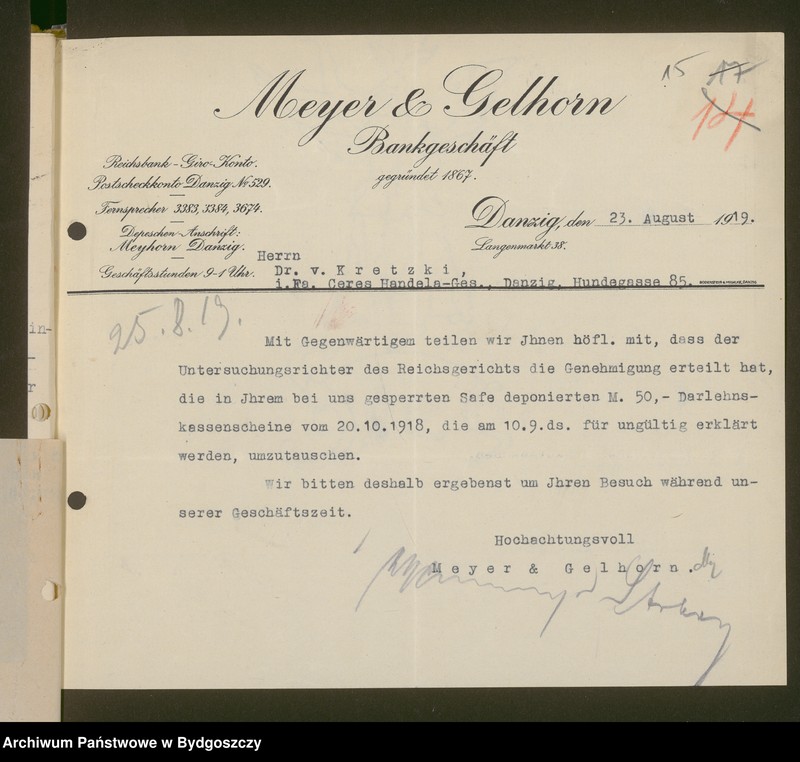 15 17
Meyer & Gelhorn
Bankgeschäft
gegründet 1867.
Reichsbank-Giro-Konto.
Postscheckkonto Danzig No 529.
Fernsprecher 3383, 3384, 3674.
Depeschen-Anschrift:
Meyhorn Danzig.
Geschäftsstunden 9-1 Uhr.
Danzig, den 23. August 1919.
Langenmarkt 38.
Herrn
Dr. v. Kretzki,
i.Fa. Ceres Handels-Ges., Danzig, Hundegasse 85.
25.8.19.
in-
Mit Gegenwärtigem teilen wir Jhnen höfl. mit, dass der
Untersuchungsrichter des Reichsgerichts die Genehmigung erteilt hat,
die in Jhrem bei uns gesperrten Safe deponierten M. 50,- Darlehns-
kassenscheine vom 20.10.1918, die am 10.9.ds. für ungültig erklärt
werden, umzutauschen.
Wir bitten deshalb ergebenst um Jhren Besuch während un-
serer Geschäftszeit.
Hochachtungsvoll
Meyer & Gelhorn.
Archiwum Państwowe w Bydgoszczy